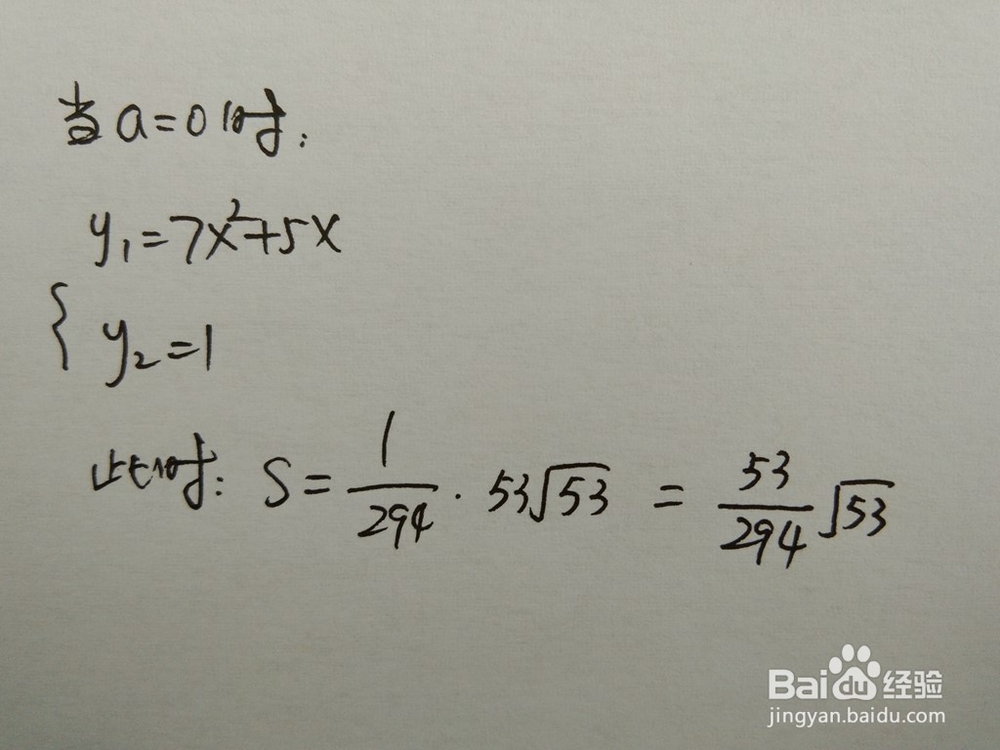 当a=0时:
y₁=7x²+5x
{ y₂=1
此时: S=1/294·53√53 = 53/294√53
Baidu经验
jingyan.baidu.com